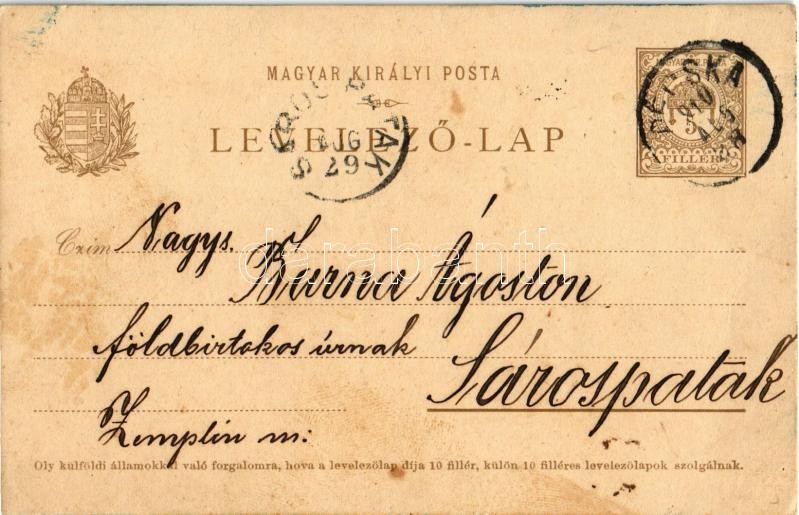 MAGYAR KIRÁLYI POSTA
LEVELEZŐ-LAP
MAGYAR KIR. POSTA
5
FILLÉR
SÁROSPATAK
AUG
29
Czim Nagys.
Barna Ágoston
földbirtokos úrnak
Sárospatak
Zemplén m:
Oly külföldi államokkal való forgalomra, hova a levelezőlap díja 10 fillér, külön 10 filléres levelezőlapok szolgálnak.
darabanth